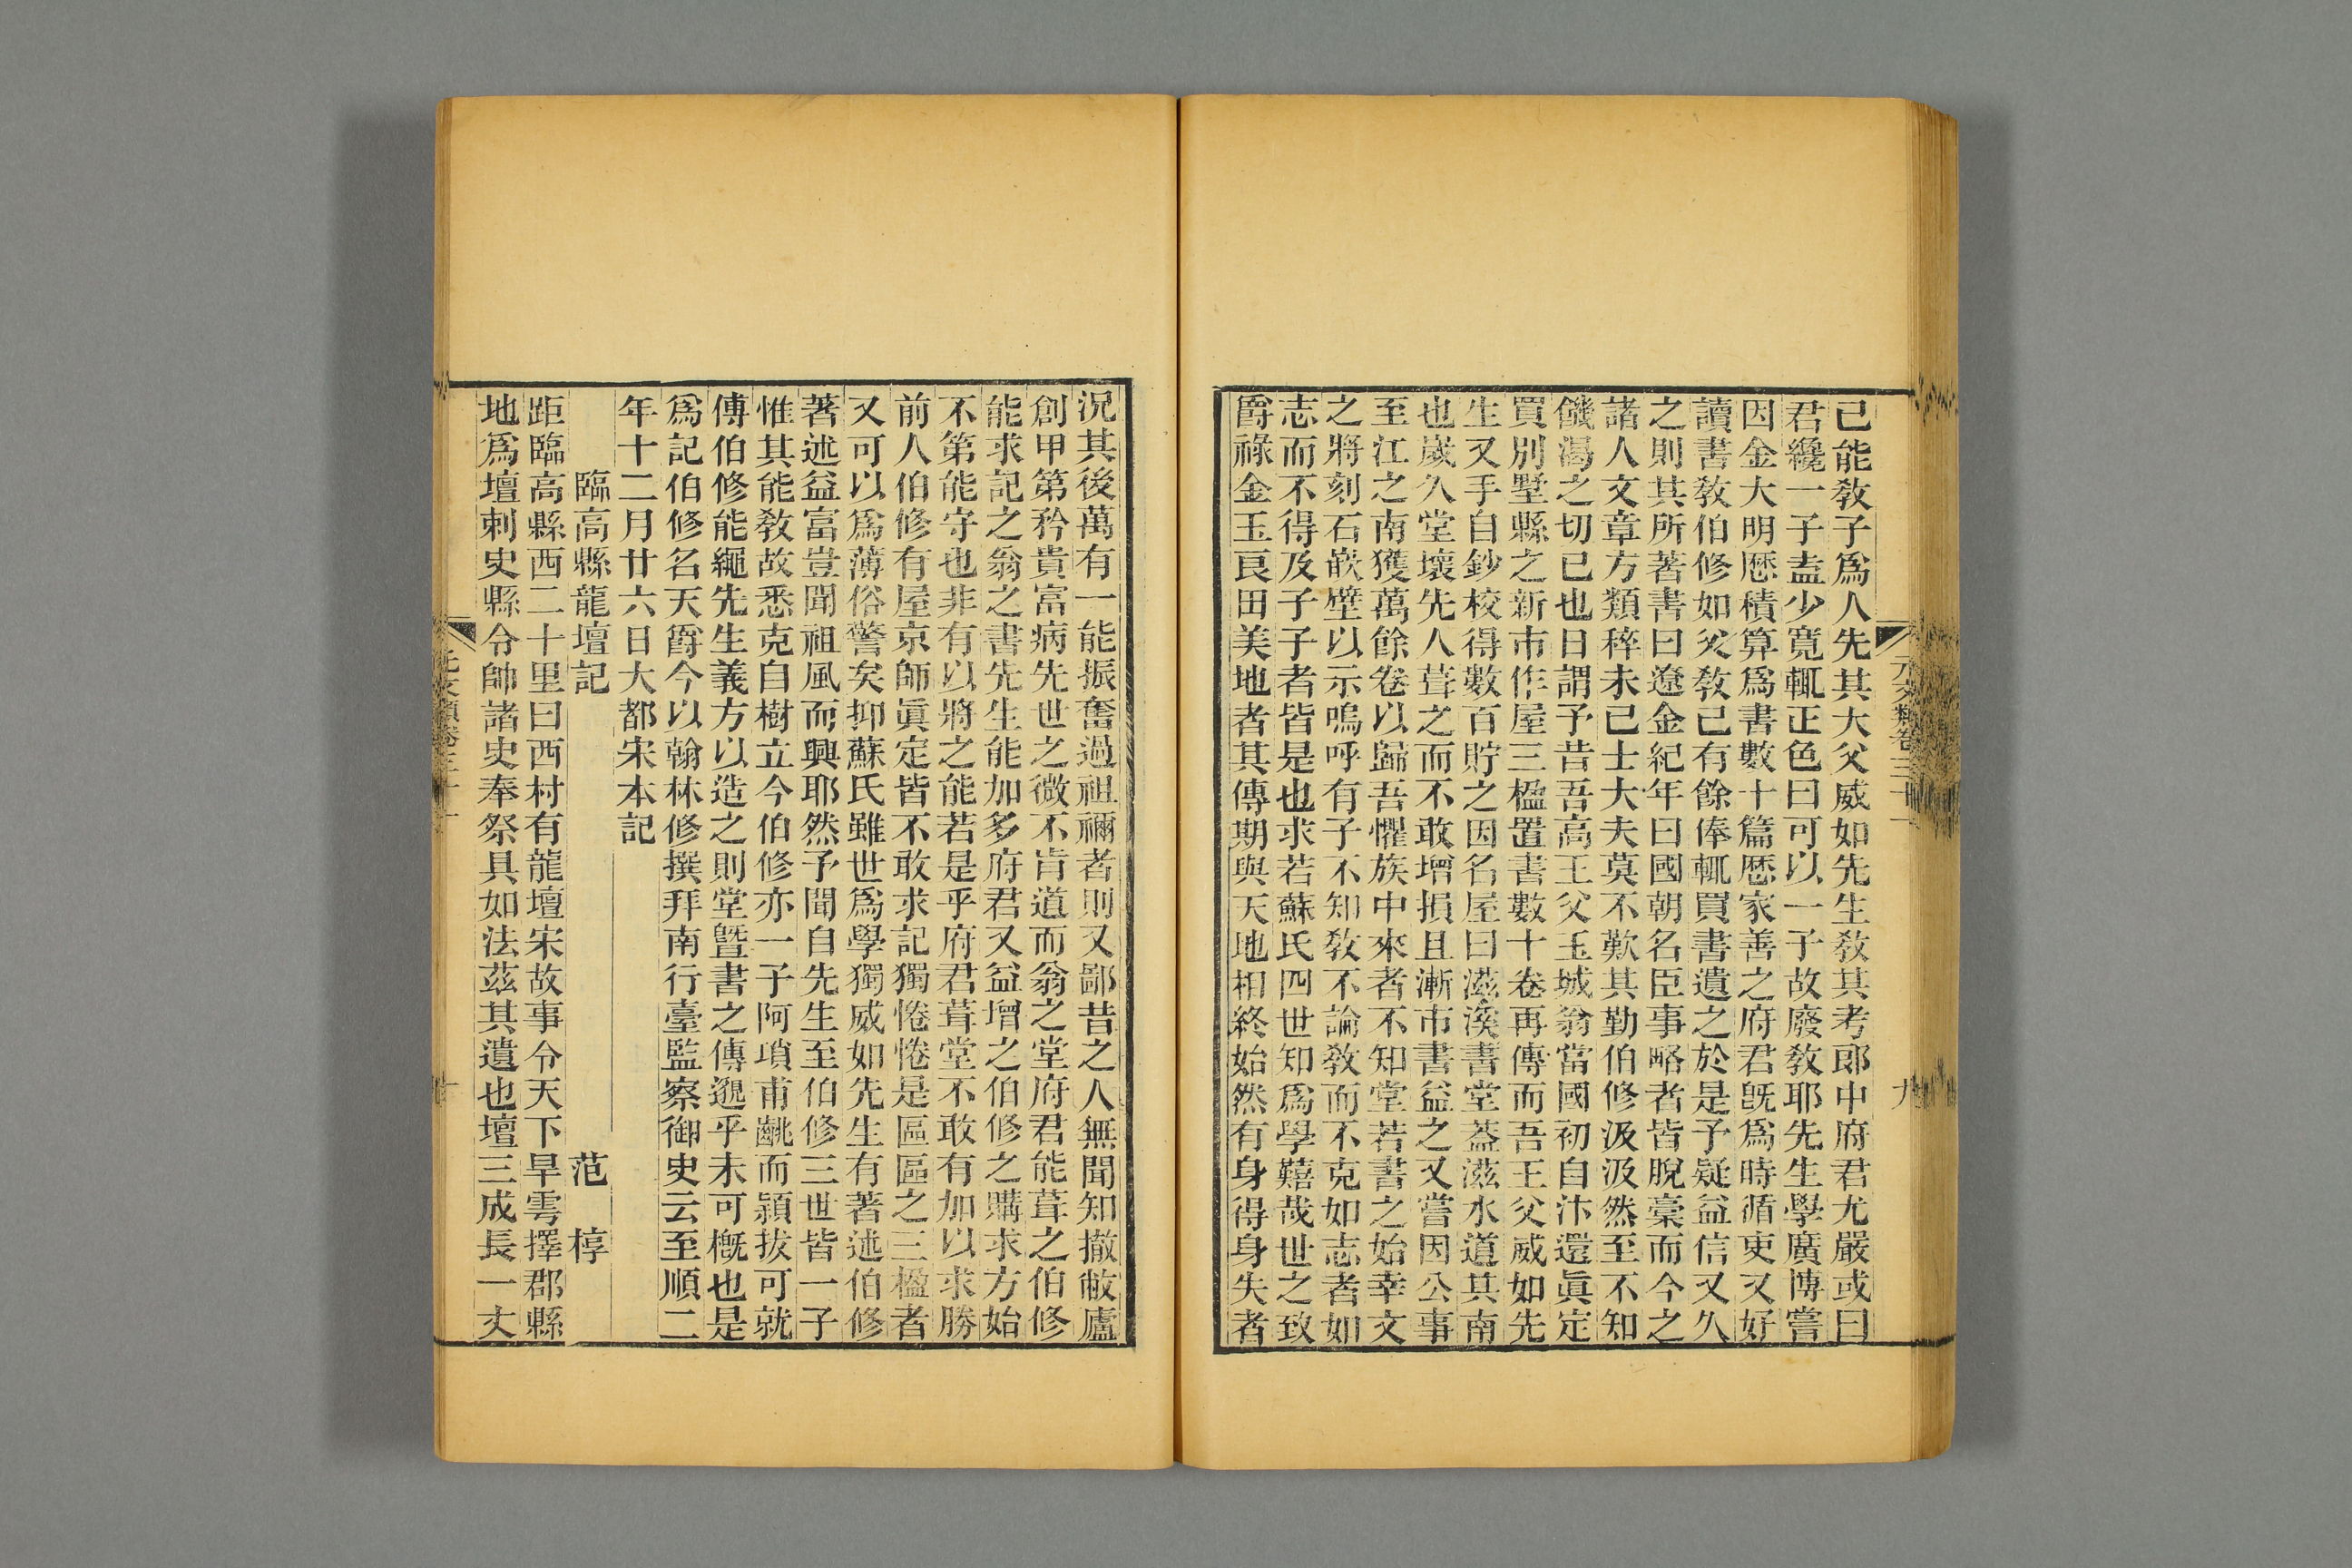 已能敎子爲人先其大父威如先生敎其考郎中府君尤嚴或曰
君纔一子盍少寬輒正色曰可以一子故廢敎耶先生學廣博嘗
因金大明厯積算爲書數十篇厯家善之府君旣爲時循吏又好
讀書敎伯修如父敎己有餘俸輒買書遺之於是予疑益信又久
之則其所著書曰遼金紀年曰國朝名臣事略者皆脫稾而今之
諸人文章方類稡未已士大夫莫不歎其勤伯修汲汲然至不知
饑渴之切已也日謂予昔吾高王父玉城翁當國初自汴還眞定
買別墅縣之新市作屋三楹置書數十卷再傳而吾王父威如先
生又手自鈔校得數百貯之因名屋曰滋溪書堂葢滋水道其南
也歲久堂壞先人葺之而不敢增損且漸市書益之又嘗因公事
至江之南獲萬餘卷以歸吾懼族中來者不知堂若書之始幸文
之將刻石嵌壁以示嗚呼有子不知敎不論敎而不克如志者如
志而不得及子子者皆是也求若蘇氏四世知爲學囏哉世之致
爵祿金玉良田美地者其傳期與天地相終始然有身得身失者
元文類卷三十一
九
況其後萬有一能振奮過祖禰者則又鄙昔之人無聞知撤敝廬
創甲第矜貴富病先世之微不肯道而翁之堂府君能葺之伯修
能求記之翁之書先生能加多府君又益增之伯修之購求方始
不第能守也非有以將之能若是乎府君葺堂不敢有加以求勝
前人伯修有屋京師眞定皆不敢求記獨惓惓是區區之三楹者
又可以爲薄俗警矣抑蘇氏雖世爲學獨威如先生有著述伯修
著述益富豈聞祖風而興耶然予聞自先生至伯修三世皆一子
惟其能敎故悉克自樹立今伯修亦一子阿瑣甫齠而穎拔可就
傳伯修能繩先生義方以造之則堂曁書之傳遽乎未可槪也是
爲記伯修名天爵今以翰林修撰拜南行臺監察御史云至順二
年十二月廿六日大都宋本記
臨高縣龍壇記 范 梈
距臨高縣西二十里曰西村有龍壇宋故事令天下旱雩擇郡縣
地爲壇刺史縣令帥諸史奉祭具如法茲其遺也壇三成長一丈